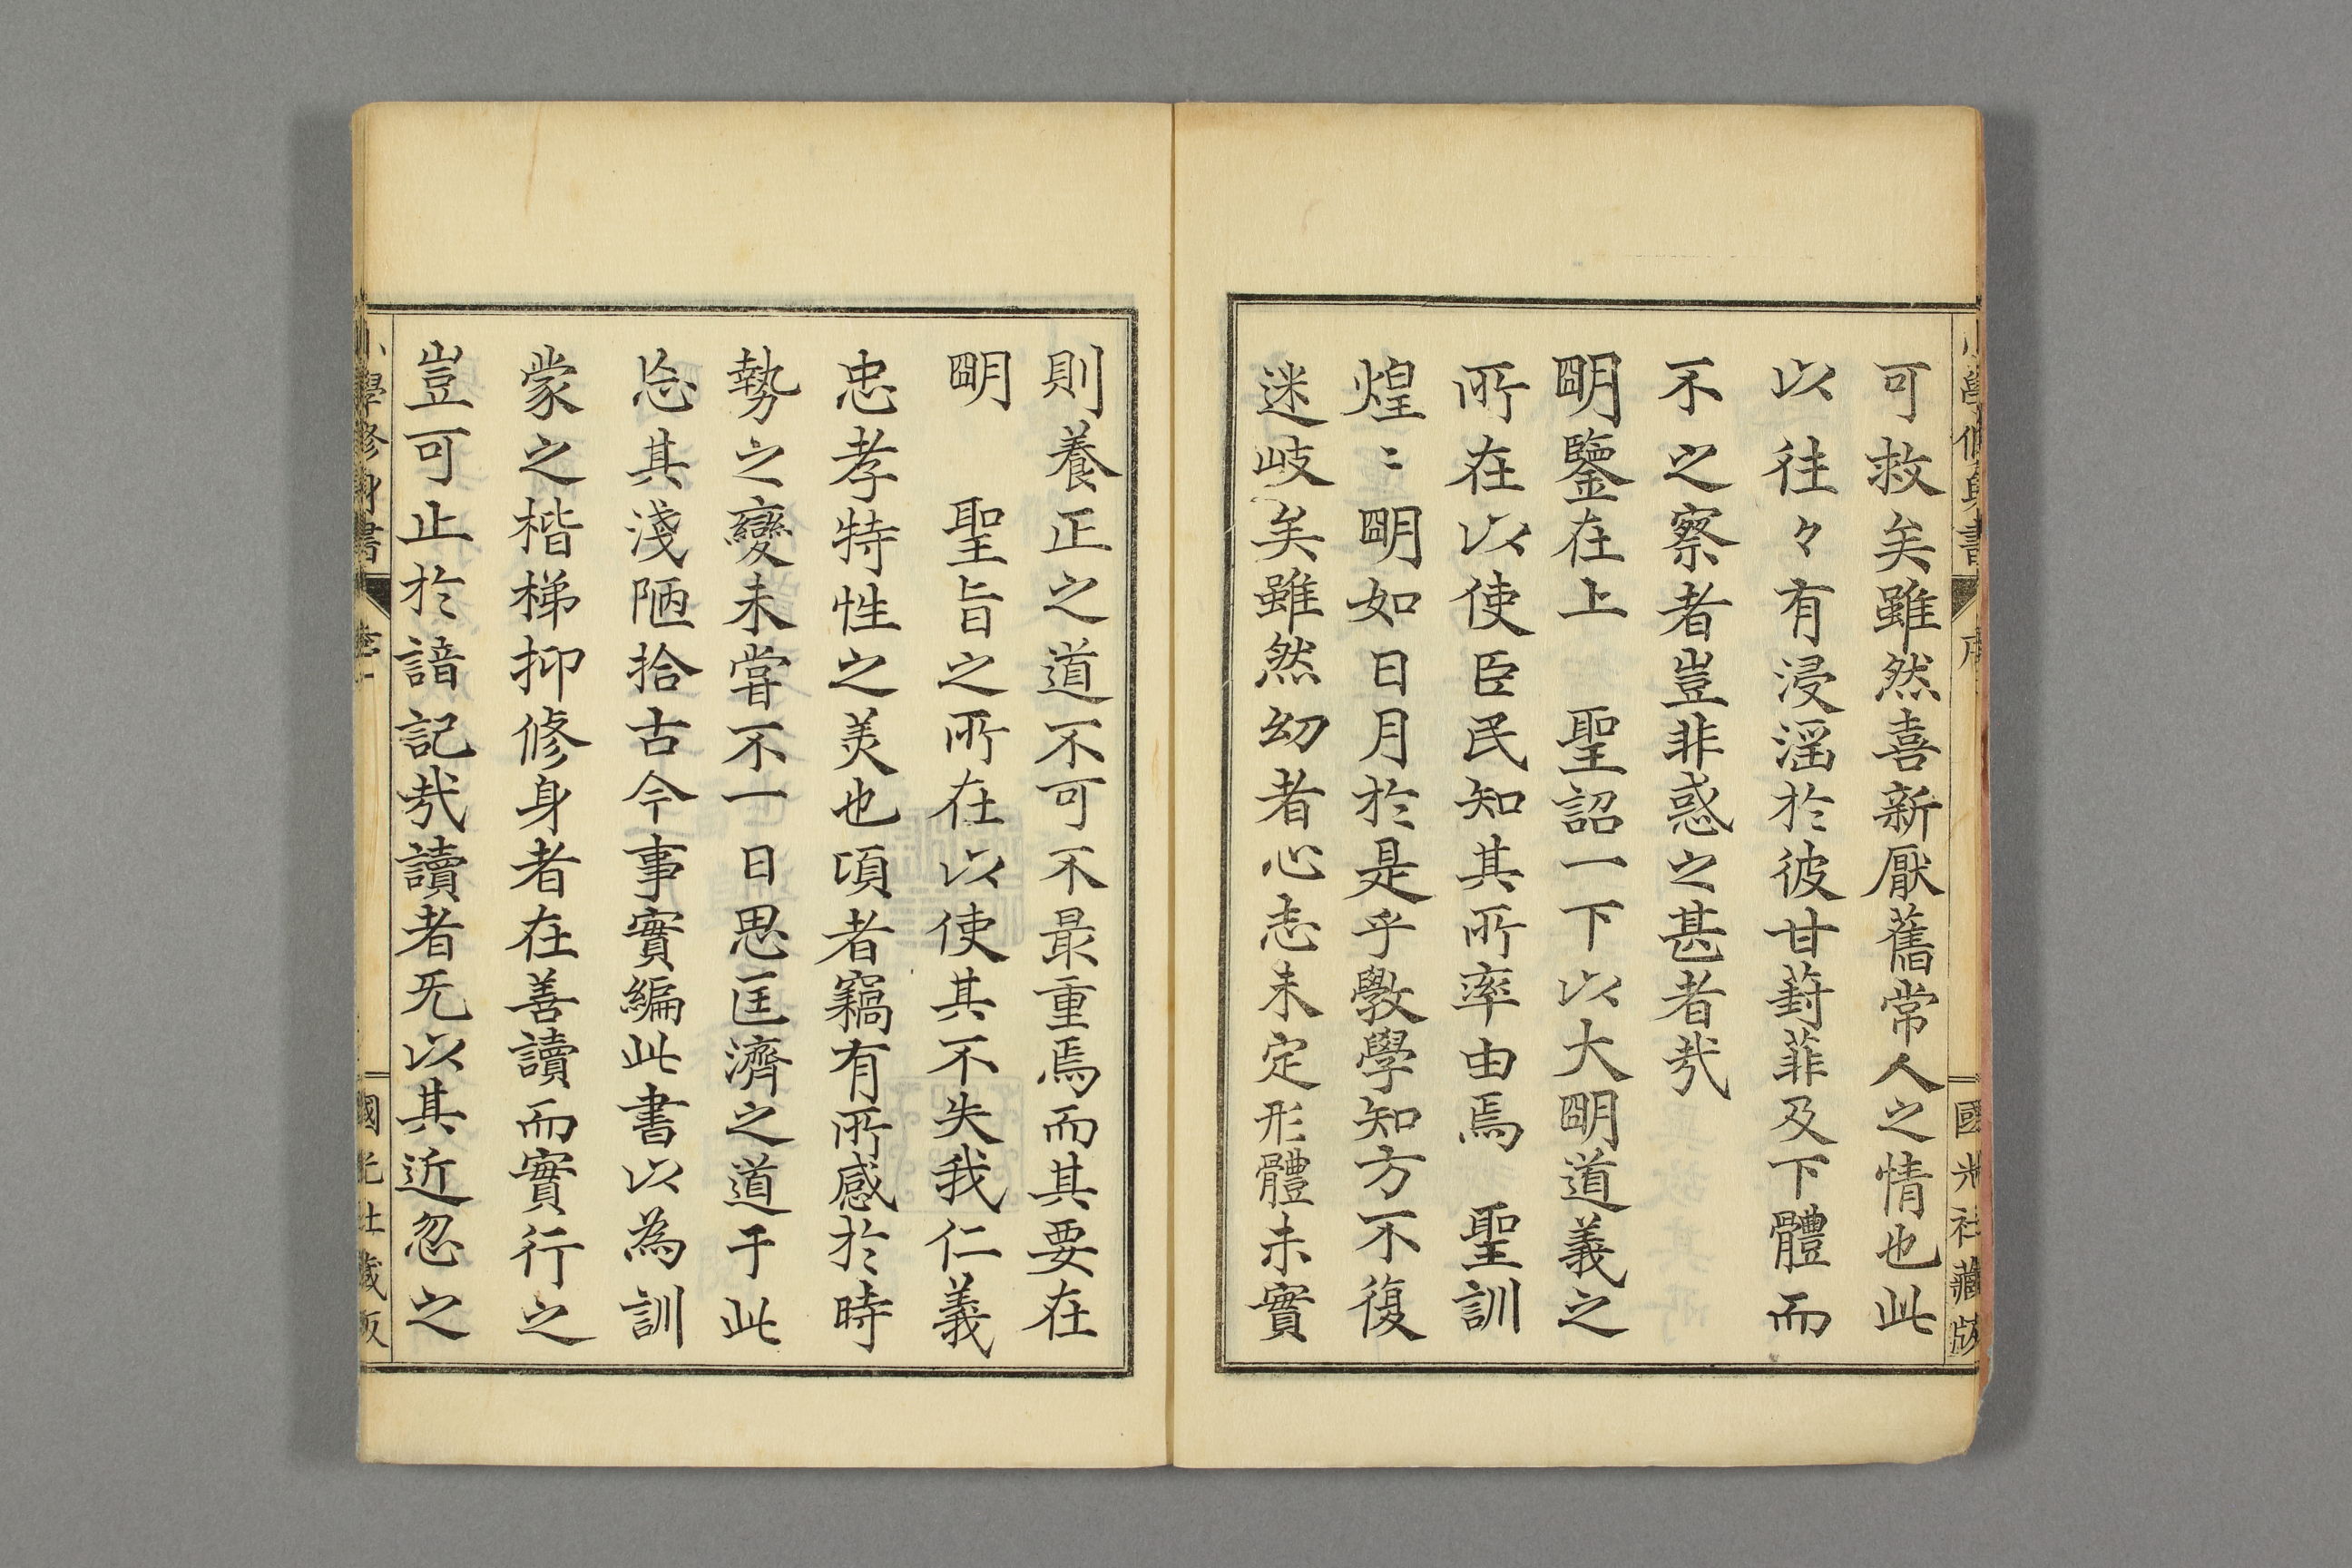 小學修身書 序 國光社藏版
可救矣雖然喜新厭舊常人之情也此
以往々有浸淫於彼甘葑菲及下體而
不之察者豈非惑之甚者哉
明鑒在上　聖詔一下以大明道義之
所在以使臣民知其所率由焉　聖訓
煌〻明如日月於是乎教學知方不復
迷岐矣雖然幼者心志未定形體未實
則養正之道不可不最重焉而其要在
明　聖旨之所在以使其不失我仁義
忠孝特性之美也頃者竊有所感於時
勢之變未嘗不一日思匡濟之道于此
忘其淺陋拾古今事實編此書以為訓
蒙之楷梯抑修身者在善讀而實行之
豈可止於諳記哉讀者旡以其近忽之
小學修身書 國光社藏版